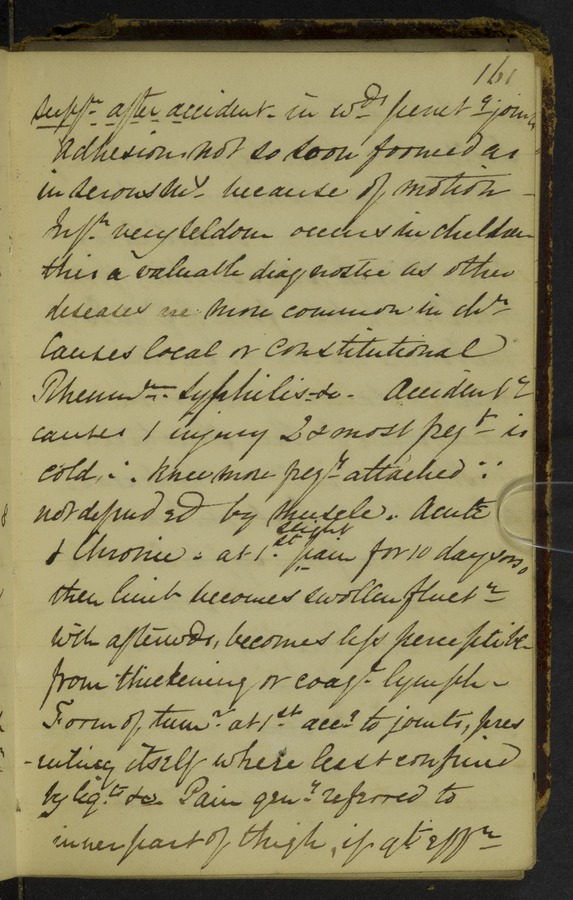 161
supp.n after accident - in wds penet.g joints
Adhesions not so soon formed as
in serous mb. because of motion -
Infn. very seldom occurs in children
this a valuable diagnostic as other
diseases are more common in chn
Causes local or Constitutional
Rheumm. Syphilis &c - Accident.l
causes 1 injury 2 & most freqt is
cold, ∴ knee more freqy attacked ∵
not defended by muscle. Acute
slight
& Chronic - at 1st pain for 10 days or so
then limb becomes swollen fluctn
wch afterwds, becomes less perceptible
from thickening or coagd lymph -
Form of tumr at 1st accg to joints, pres
-enting itself where least confined
by ligts &c Pain geny referred to
inner part of thigh, if gt effn